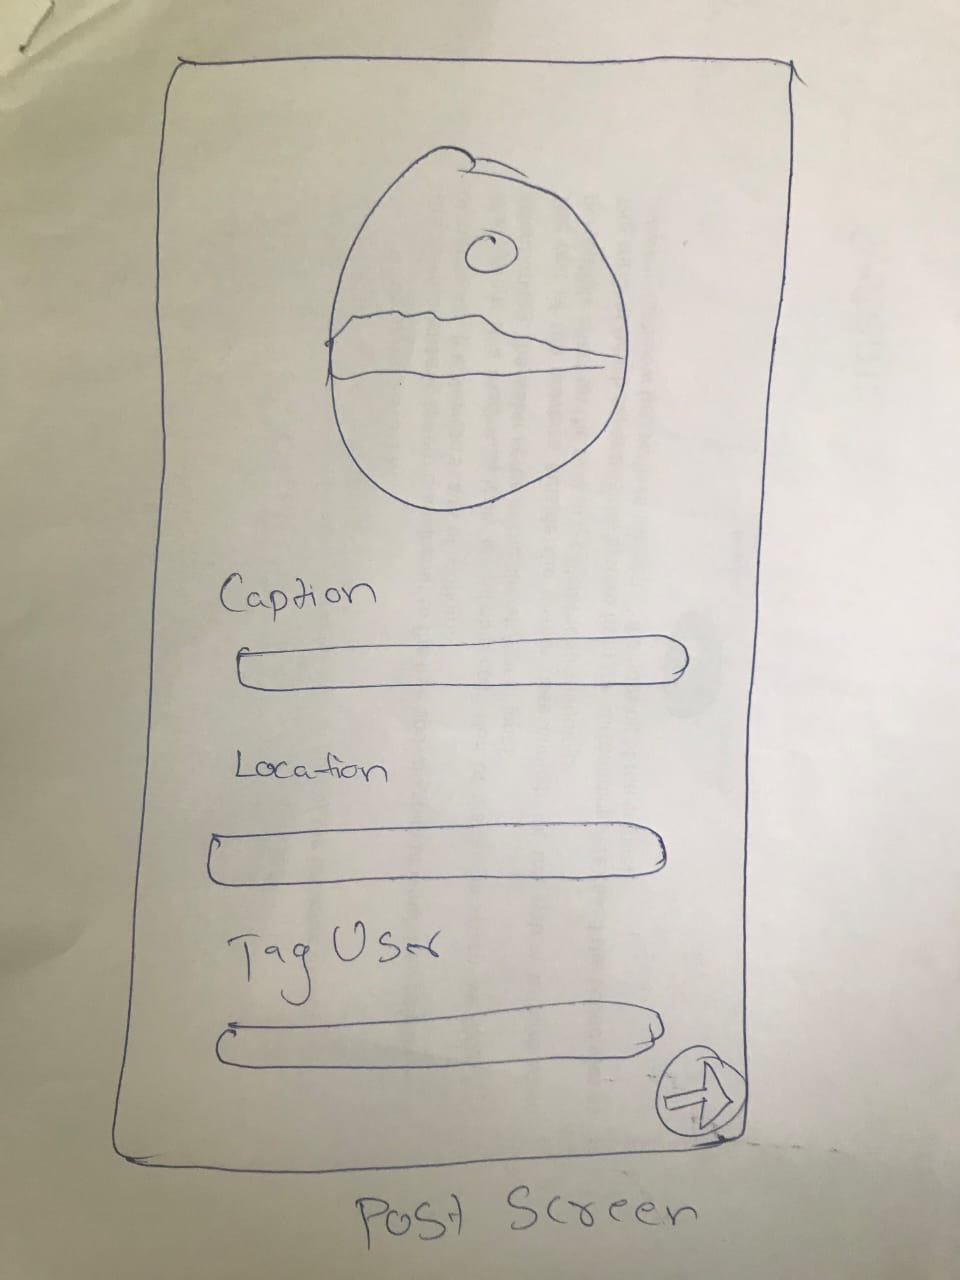 Caption
Location
Tag User
Post Screen